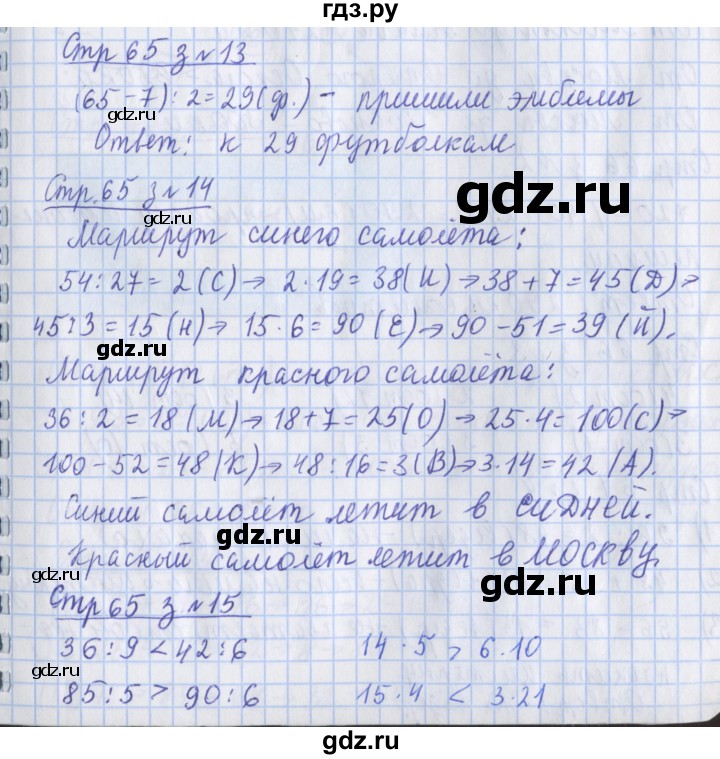 гдз.ру
Стр 65 з №13
gdz.ru
(65-7):2=29(ф.) - пришили эмблемы
Ответ: к 29 футболкам
Стр.65 з №14
gdz.ru
gdz.ru
Маршрут синего самолёта:
54:27=2(С)→ 2·19=38(И)→38+7=45(Д)→
45:3=15(Н)→ 15·6=90(Е)→90-51=39(Й).
gdz.ru
gdz.ru
Маршрут красного самолёта:
36:2=18(М)→18+7=25(О)→25·4=100(С)→
100-52=48(К)→48:16=3(В)→3·14=42(А).
gdz.ru
gdz.ru
Синий самолёт летит в СИДНЕЙ.
gdz.ru
Красный самолёт летит в МОСКВУ
gdz.ru
gdz.ru
Стр 65 з №15
gdz.ru
36:9<42:6 14·5 > 6·10
gdz.ru
85:5>90:6 15·4 < 3·21
gdz.ru
gdz.ru